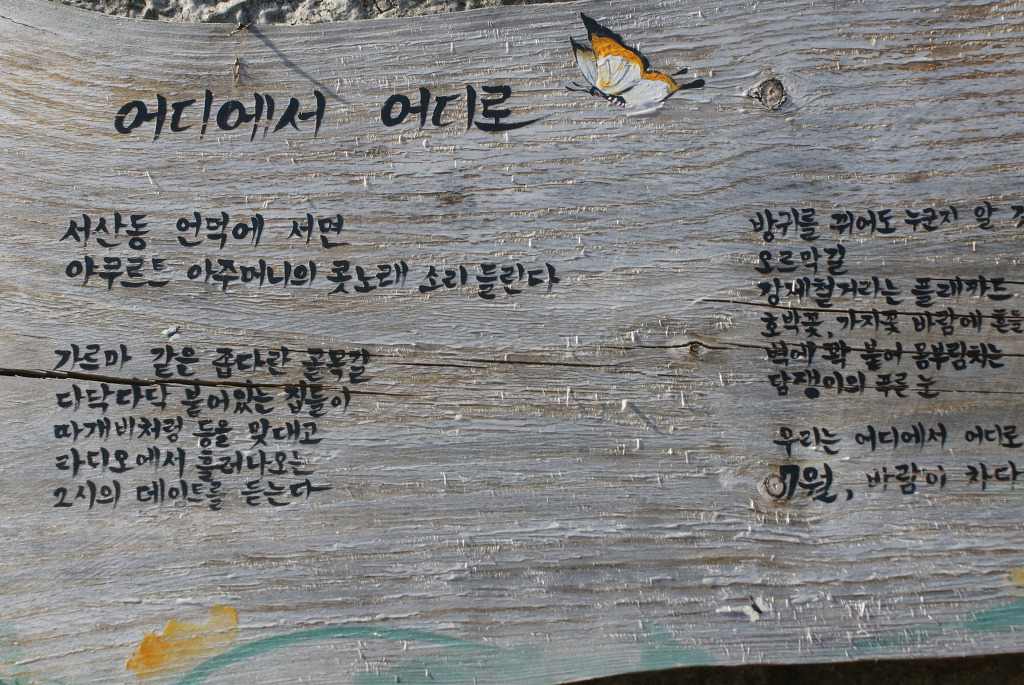 어디에서 어디로
서산동 언덕에 서면
야쿠르트 아주머니의 콧노래 소리 들린다
가르마 같은 좁다란 골목길
다닥다닥 붙어있는 집들이
따개비처럼 등을 맞대고
라디오에서 흘러나오는
2시의 데이트를 듣는다
방귀를 뀌어도 누군지 알
오르막길
강제철거라는 플래카드
호박꽃, 가지꽃 바람에 흔들
벽에 꽉 붙어 몸부림치는
담쟁이의 푸른 눈
우리는 어디에서 어디로
7월, 바람이 차다